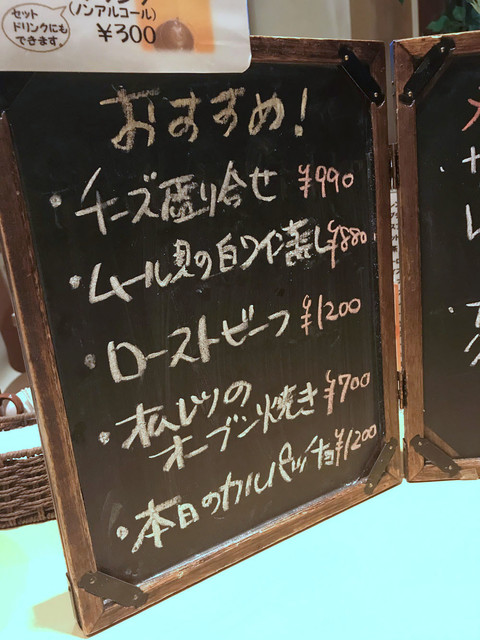 (ノンアルコール)
¥300
セット
ドリンクにも
できます。
おすすめ!
・チーズ盛り合せ ¥990
・ムール貝の白ワイン蒸し ¥880
・ローストビーフ ¥1200
オーブン焼き ¥700
・本日のカルパッチョ ¥1200